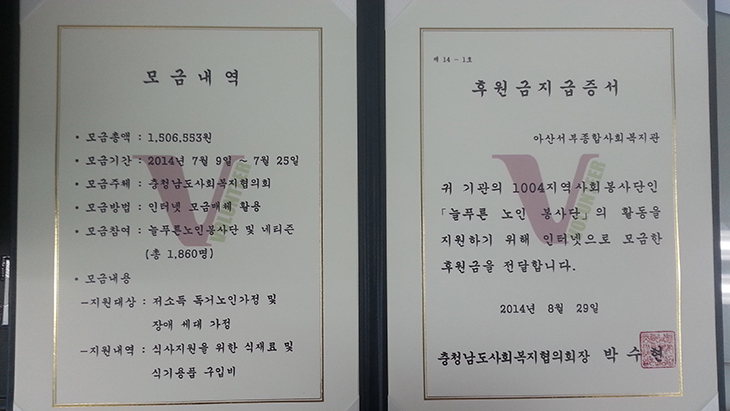 모금내역
• 모금총액 : 1,506,553원
• 모금기간 : 2014년 7월 9일 ~ 7월 25일
• 모금주체 : 충청남도사회복지협의회
• 모금방법 : 인터넷 모금매체 활용
• 모금참여 : 늘푸른노인봉사단 및 네티즌
(총 1,860명)
• 모금내용
-지원대상 : 저소득 독거노인가정 및
장애 세대 가정
-지원내역 : 식사지원을 위한 식재료 및
식기용품 구입비
V
VOLUNTEER
제 14 - 1호
후원금지급증서
아산서부종합사회복지관
귀 기관의 1004지역사회봉사단인
「늘푸른 노인 봉사단」의 활동을
지원하기 위해 인터넷으로 모금한
후원금을 전달합니다.
2014년 8월 29일
충청남도사회복지협의회장 박수현
V
VOLUNTEER